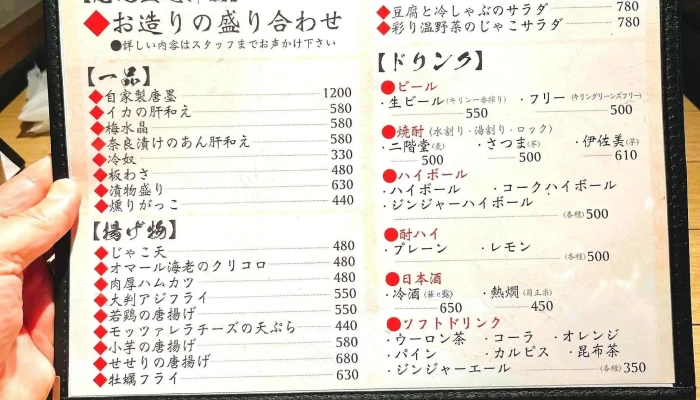 ◆お造りの盛り合わせ
●詳しい内容はスタッフまでお声かけ下さい
【一品】
◆自家製唐墨 1200
◆イカの肝和え 580
◆梅水晶 580
◆奈良漬けのあん肝和え 580
◆冷奴 330
◆板わさ 480
◆漬物盛り 630
◆燻りがっこ 440
【揚げ物】
◆じゃこ天 480
◆オマール海老のクリコロ 480
◆肉厚ハムカツ 480
◆大判アジフライ 550
◆若鶏の唐揚げ 550
◆モッツァレラチーズの天ぷら 440
◆小芋の唐揚げ 580
◆せせりの唐揚げ 680
◆牡蠣フライ 630
◆豆腐と冷しゃぶのサラダ 780
◆彩り温野菜のじゃこサラダ 780
【ドリンク】
●ビール
・生ビール(キリン一番搾り) ・フリー(キリングリーンズフリー)
550 500
●焼酎(水割り・湯割り・ロック)
・二階堂(麦) ・さつま(芋) ・伊佐美(芋)
500 500 610
●ハイボール
・ハイボール ・コークハイボール
・ジンジャーハイボール
(各種)500
●酎ハイ
・プレーン ・レモン
(各種)500
●日本酒
・冷酒 ・熱燗(菊正宗)
650 450
●ソフトドリンク
・ウーロン茶 ・コーラ ・オレンジ
・パイン ・カルピス ・昆布茶
・ジンジャーエール (各種)350